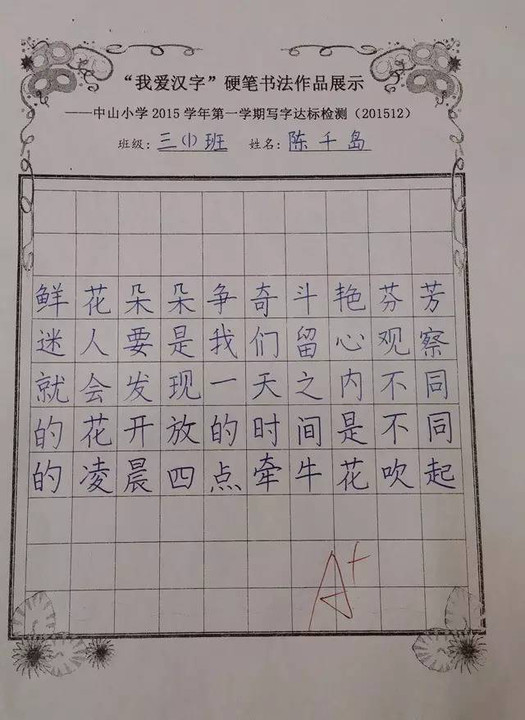 “我爱汉字”硬笔书法作品展示
——中山小学2015学年第一学期写字达标检测（201512）
班级：三(1)班 姓名：陈千岛
鲜花朵朵争奇斗艳芬芳
迷人要是我们留心观察
就会发现一天之内不同
的花开放的时间是不同
的凌晨四点牵牛花吹起
A+